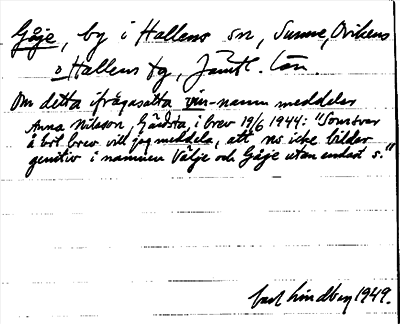 Gåje, by i Hallens sn, Sunne, Ovikens
o Hallens tg, Jämtl. län.
Om detta ifrågasatta vin-namn meddelar
Anna Nilsson, Gärdsta, i brev 19/6 1944: "Som svar
å brev vill jag meddela, att ns icke bildar
genitiv i namnen Välje och Gåje utan endast s."
Carl Lindberg 1949.